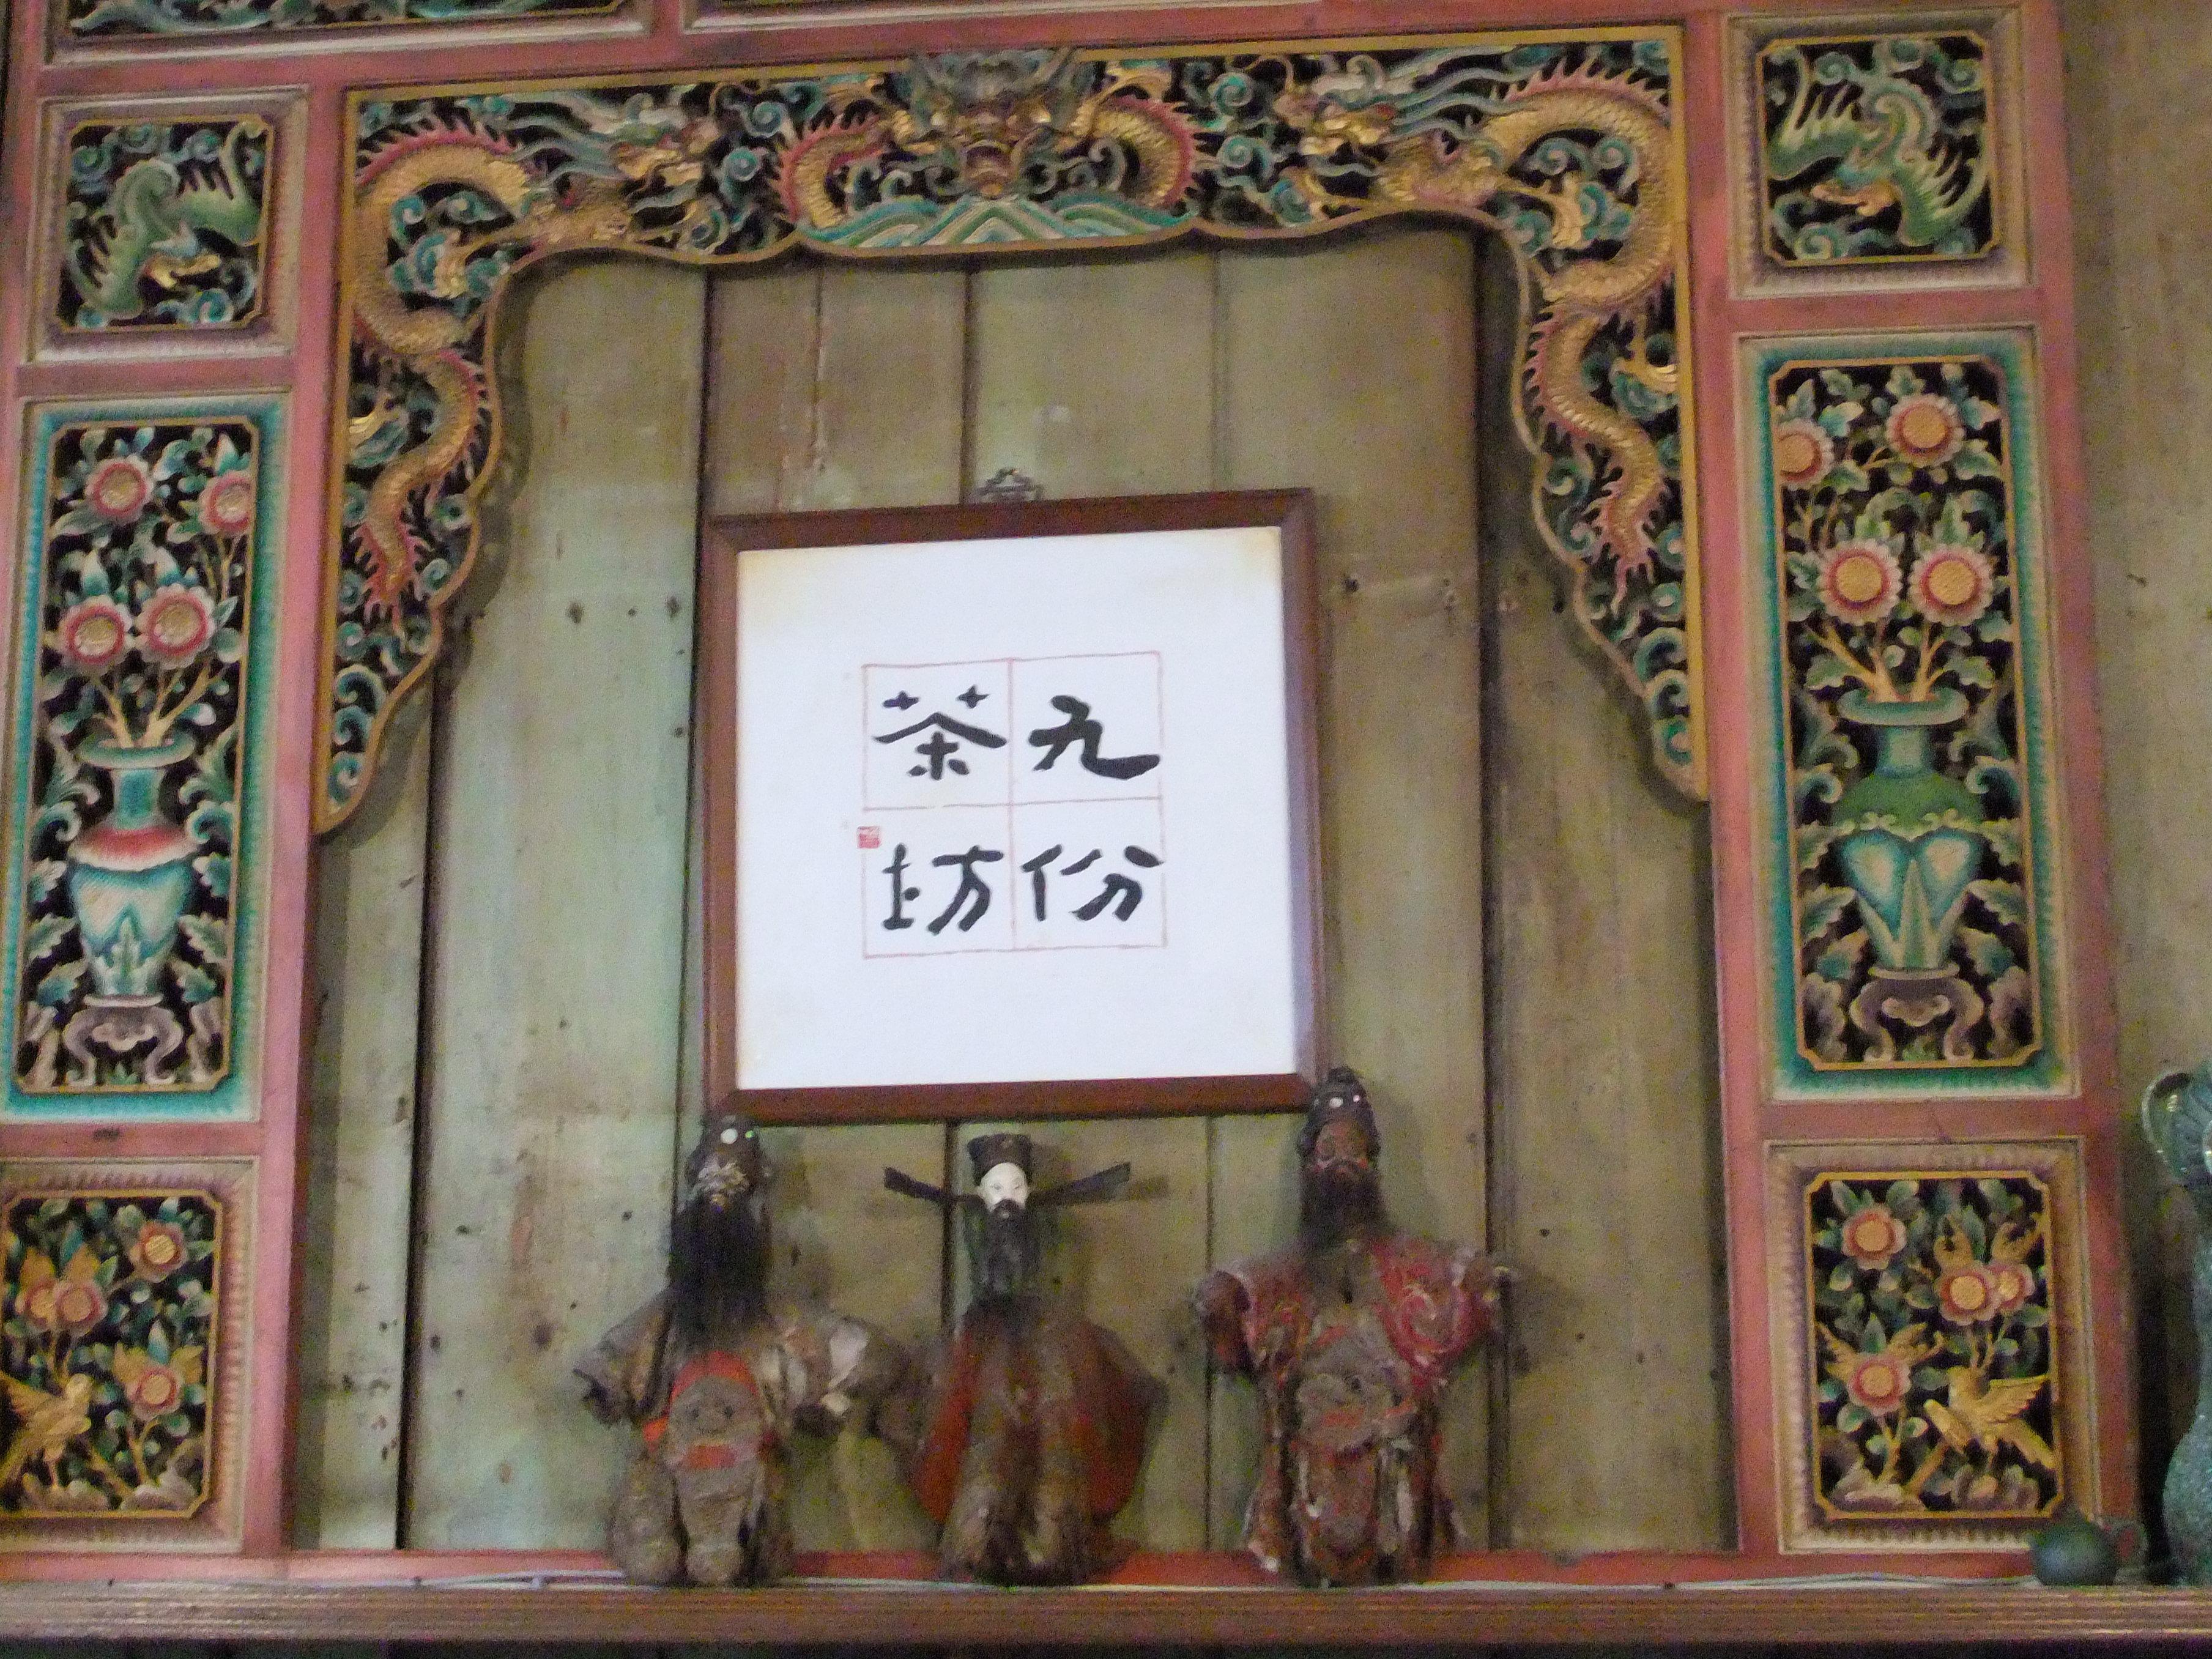 九份
茶坊